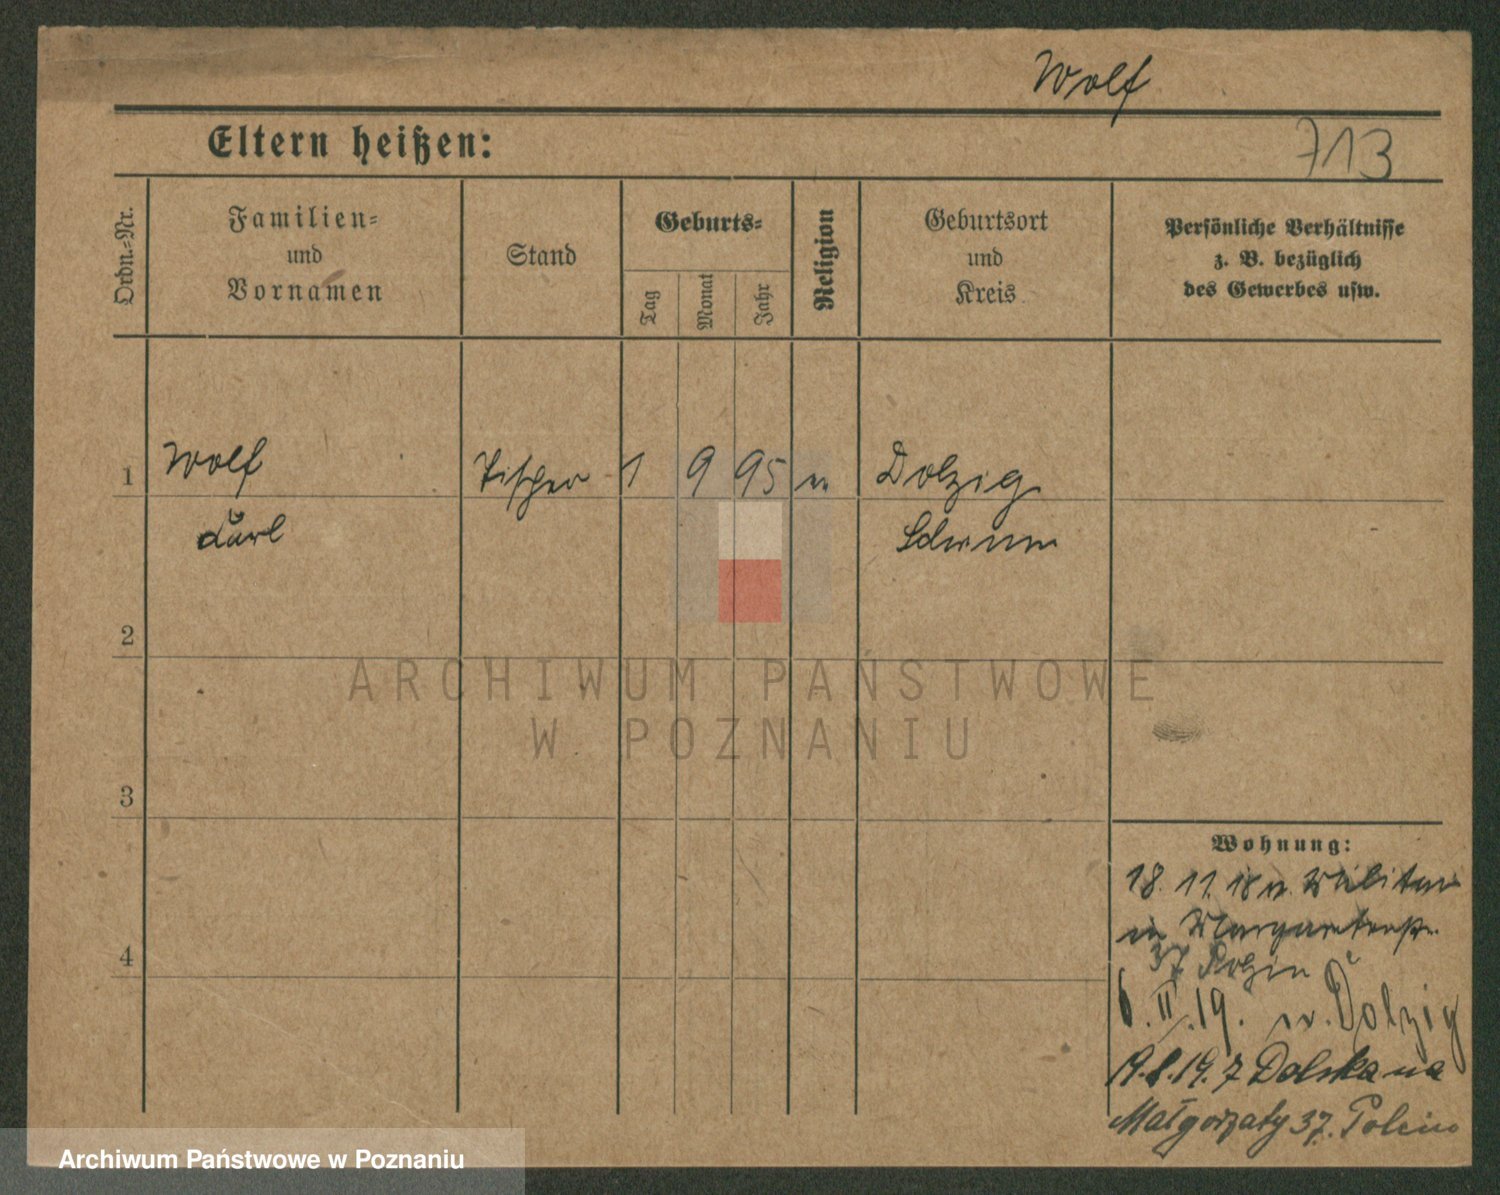 Wolf
Eltern heißen:
713
Ordn.-Nr.
Familien-
und
Vornamen
Stand
Geburts-
Tag
Monat
Jahr
Religion
Geburtsort
und
Kreis
Persönliche Verhältnisse
z. B. bezüglich
des Gewerbes usw.
1
Wolf
Tischer
1
9
95
Dolzig
Karl
Schrimm
2
ARCHIWUM PAŃSTWOWE
W POZNANIU
3
Wohnung:
18. 11. 18 v. Militär
in Margaretenstr.
37
4
6. II. 19. n. Dolzig
19.8.19. z Dolska na
Małgorzaty 37.
Archiwum Państwowe w Poznaniu